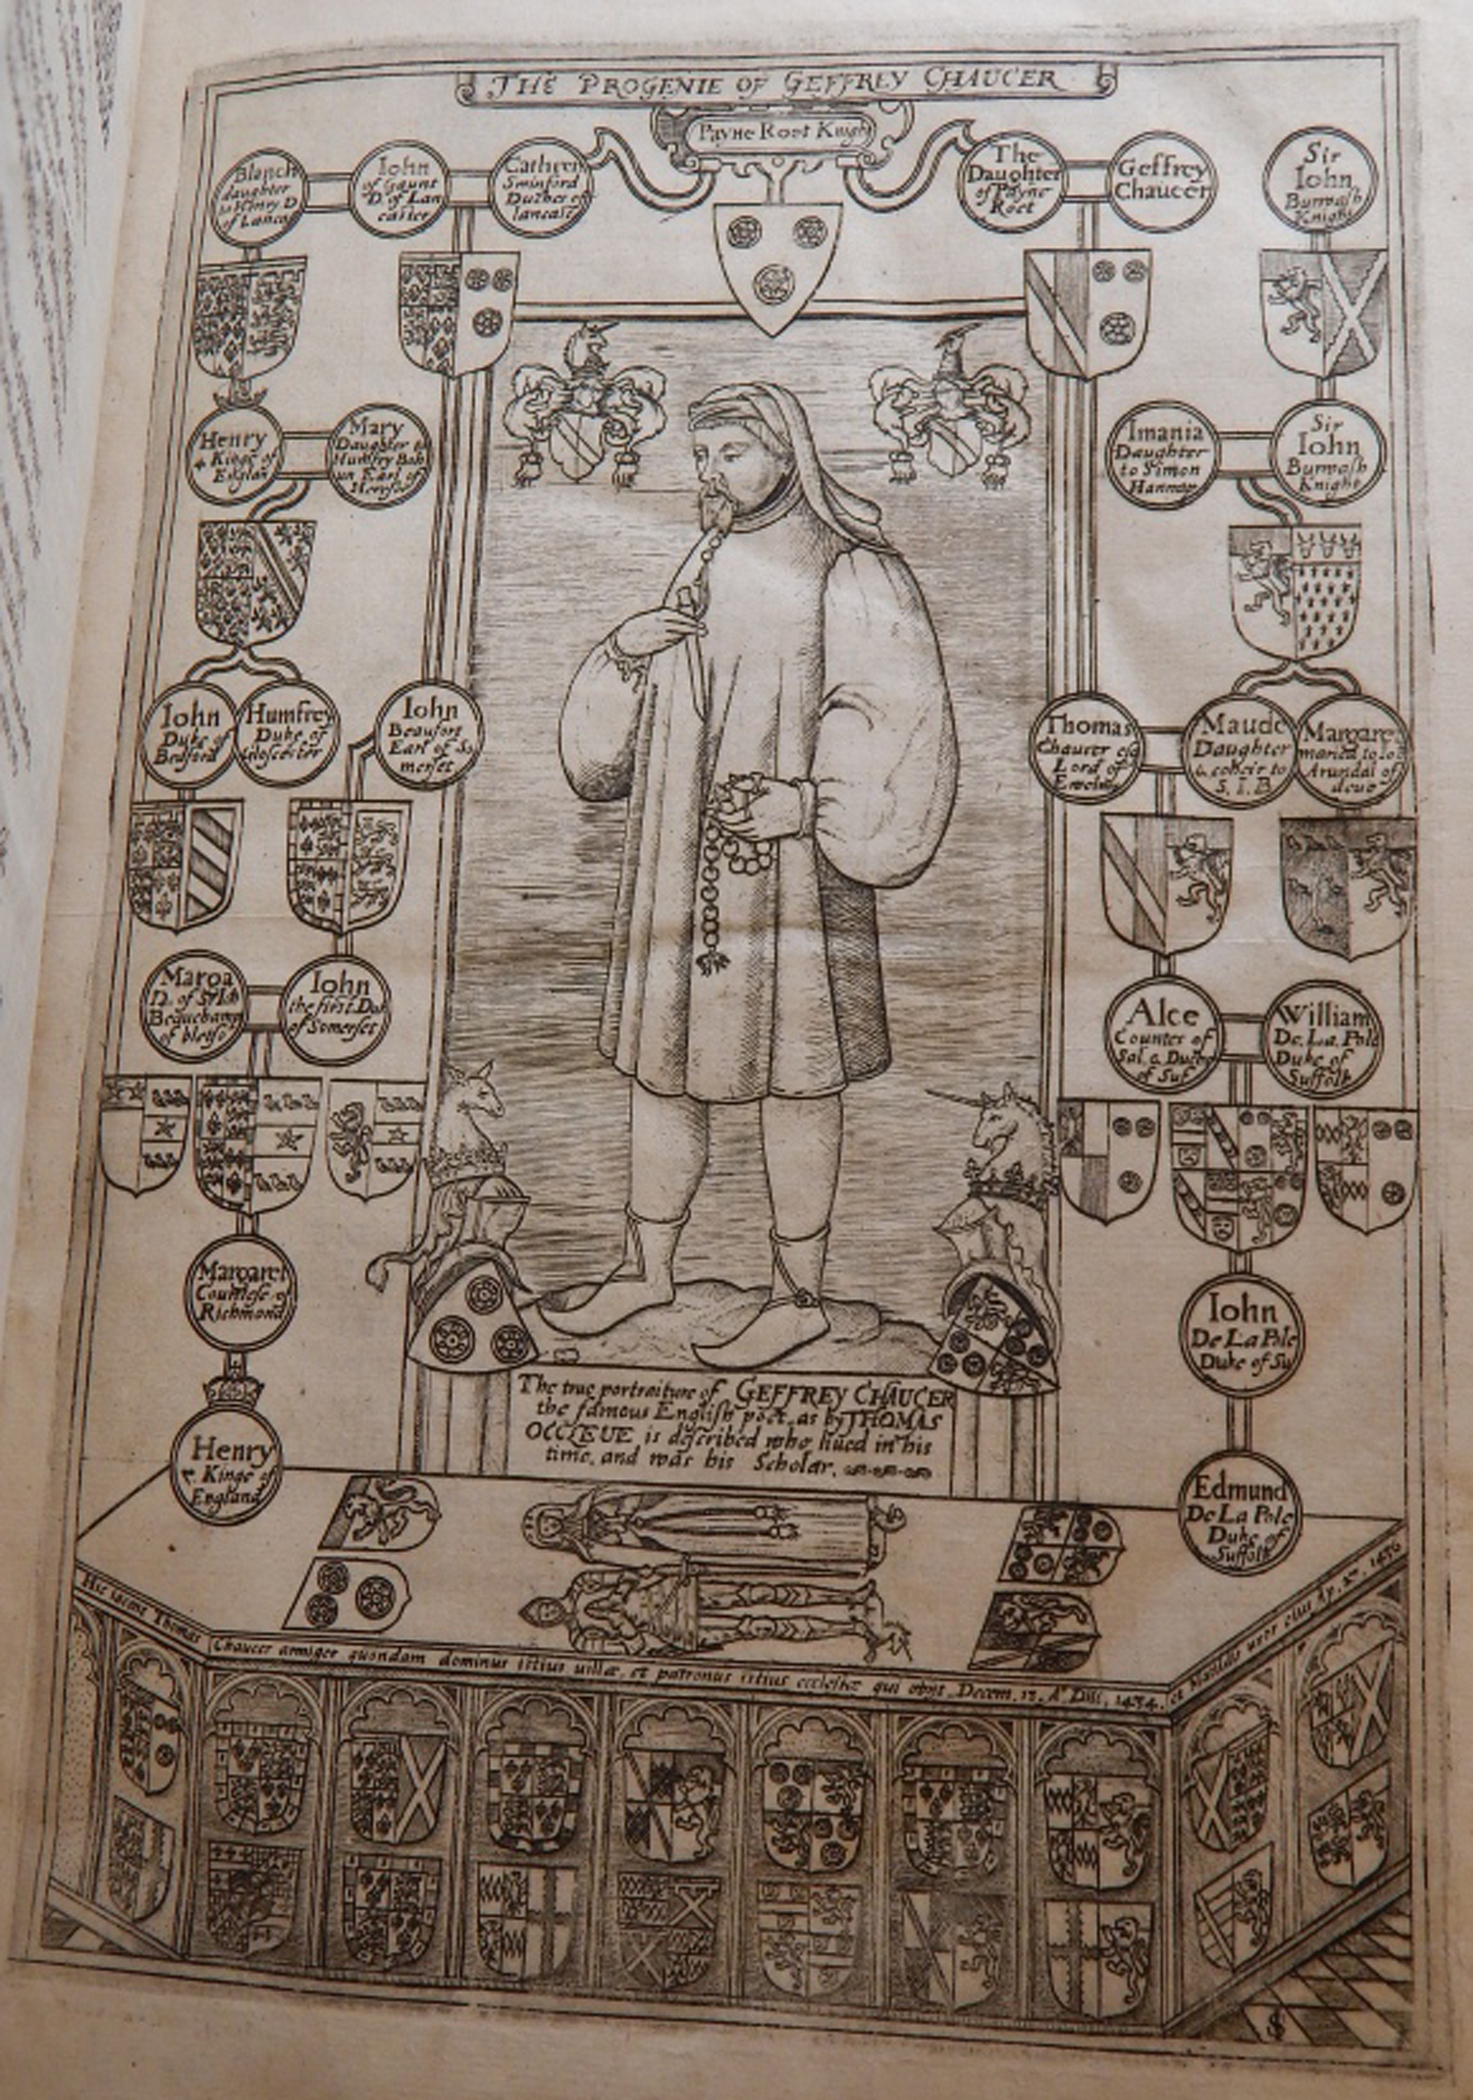 THE PROGENIE OF GEFFREY CHAUCER
Payne Roet Knight
Blanch
daughter
to Henry D
of Lanca
Iohn
of Gaunt
D. of Lan
caster
Cathren
Swinford
Duches of
lancast
The
Daughter
of Payne
Roet
Geffrey
Chaucer
Sir
Iohn
Burwash
Knight
Henry
4 Kinge of
Englan
Mary
Daughter to
Humfry Boh
un Earl of
Herefo
Imania
Daughter
to Simon
Hannap
Sir
Iohn
Burwash
Knight
Iohn
Duke of
Bedford
Humfrey
Duke of
Glocester
Iohn
Beaufort
Earl of So
merset
Thomas
Chaucer esq
Lord of
Ewelm
Maude
Daughter
& coheir to
S. I. B
Margaret
maried to Io
Arundal of
deuo
Marga
D. of Sr Ioh
Beauchamp
of bletso
Iohn
the first Duk
of Somerset
Alce
Countes of
Sal & Duche
of Suf
William
De La Pole
Duke of
Suffolk
Margaret
Countese of
Richmond
Iohn
De La Pole
Duke of Su
Henry
7 Kinge of
England
Edmund
De La Pole
Duke of
Suffolk
The true portraiture of GEFFREY CHAUCER
the famous English poet, as by THOMAS
OCCLEUE is described who liued in his
time, and was his Scholar.
Hic iacent Thomas Chaucer armiger quondam dominus istius uillæ, et patronus istius ecclesiæ qui obijt Decem. 18. Ao Dni, 1434. et Matildis uxor eius Ap. 1436